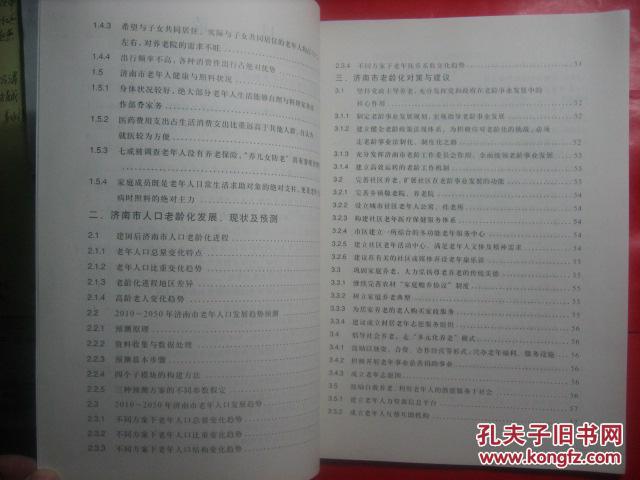 1.4.3 希望与子女共同居住、实际与子女共同居住的老年人
左右，对养老院的需求不旺
1.4.4 出行频率不高，各种消费性出行占绝对优势
1.5 济南市老年人健康与照料状况
1.5.1 身体状况较好，绝大部分老年人生活能够自理
作部分家务
1.5.2 医药费用支出占生活消费支出比重远高于其他人群，
就医较为方便
1.5.3 七成被调查老年人没有养老保险，“养儿女防老”
1.5.4 家庭成员既是老年人日常生活求助对象的绝对支柱，更是老年
病时照料的绝对主力
二、济南市人口老龄化发展、现状及预测
2.1 建国后济南市人口老龄化进程
2.1.1 老年人口总量变化特点
2.1.2 老年人口比重变化趋势
2.1.3 老龄化进程地区差异
2.1.4 高龄老人变化趋势
2.2 2010～2050年济南市老年人口发展趋势预测
2.2.1 预测原理
2.2.2 资料收集与数据处理
2.2.3 预测基本步骤
2.2.4 四个子模块的构建方法
2.2.5 三种预测方案的不同参数假定
2.3 2010～2050年济南市老年人口发展趋势
2.3.1 不同方案下老年人口总量变化趋势
2.3.2 不同方案下老年人口比重变化趋势
2.3.3 不同方案下老年人口结构变化趋势
2.3.4 不同方案下老年抚养系数变化趋势 51
三、济南市老龄化对策与建议
3.1 坚持党政主导养老，充分发挥党和政府在老龄事业发展中的
核心作用
3.1.1 制定老龄事业发展规划，宏观指导老龄事业发展
3.1.2 建立健全老龄政策法规体系，为积极应对老龄化的挑战，必须
走老龄事业法制化、制度化之路
3.1.3 充分发挥济南市老龄工作委员会作用，全面统领老龄事业发展
3.1.4 建立高效运转的老龄工作机制
3.2 完善社区养老，扩展社区在老龄事业发展的功能
3.2.1 完善乡镇敬老院、养老院
3.2.2 设立城市社区老年人公寓、托老所
3.2.3 构建社区老年医疗保健服务体系
3.2.4 市区建立一所综合的多功能老年服务中心
3.2.5 建立社区老年活动中心，满足老年人文体及精神需求
3.2.6 建议在有关的社区或媒体开设老年康乐园
3.3 巩固家庭养老，大力弘扬尊老养老的传统美德
3.3.1 继续完善农村“家庭赡养协议”制度
3.3.2 树立家庭养老典型
3.3.3 为居家养老的老人购买家政服务
3.3.4 建议成立村居老年志愿服务组织
3.4 倡导社会养老，走“多元化养老”模式
3.4.1 鼓励以独资、合资、合作经营等形式，兴办老年福利、服务设施
3.4.2 积极开展老年事业慈善捐助事业
3.4.3 成立老年志愿团 56
3.5 鼓励自救养老，利用老年人的潜能服务于社会 56
3.5.1 建立老年人力资源信息平台 57
3.5.2 成立老年人互帮互助机构 57
孔夫子旧书网
www.kongfz.com